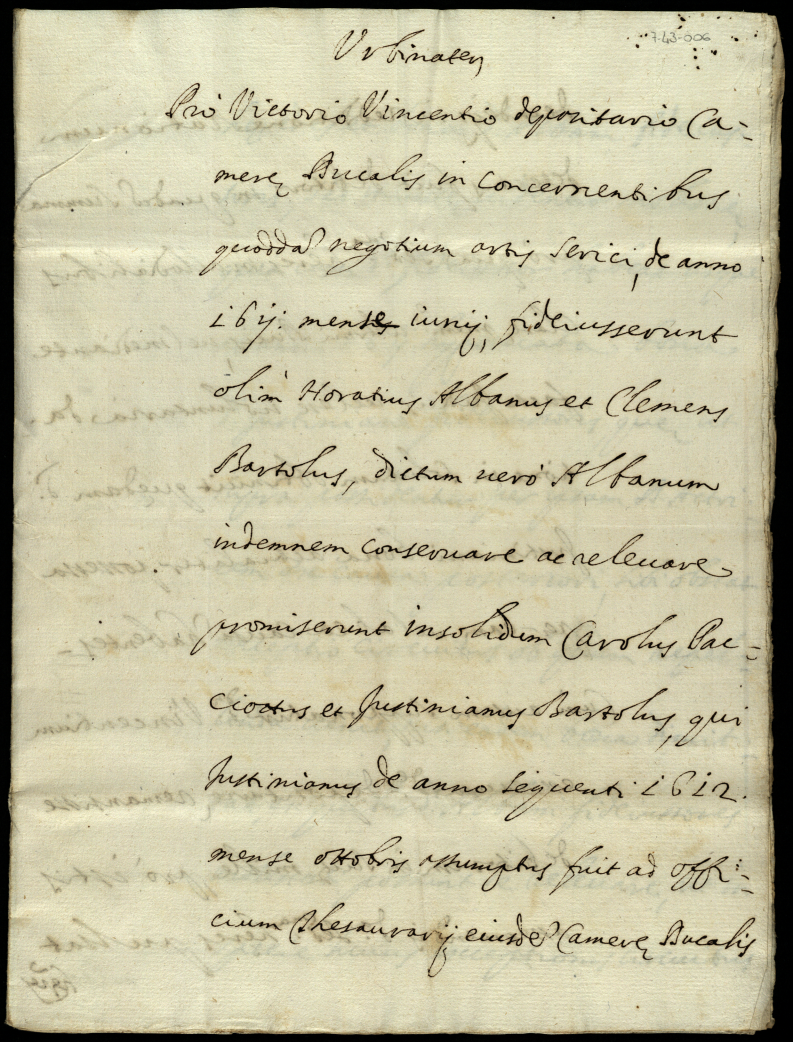 7-43-006
Urbinaten
Pro Victorio Vincentio depositario Ca=
merę Ducalis in concernentibus
quodda negotium artis serici, de anno
1611. mense iunij, fideiusserunt
olim Horatius Albanus et Clemens
Bartolus, dictum vero Albanum
indemnem conseruare ac releuare
promiserunt insolidum Carolus Pac=
ciottus et Justinianus Bartolus, qui
Justinianus de anno sequenti 1612.
mense ottobris assumptus fuit ad offi=
cium Thesaurarij eiusde Camerę Ducalis